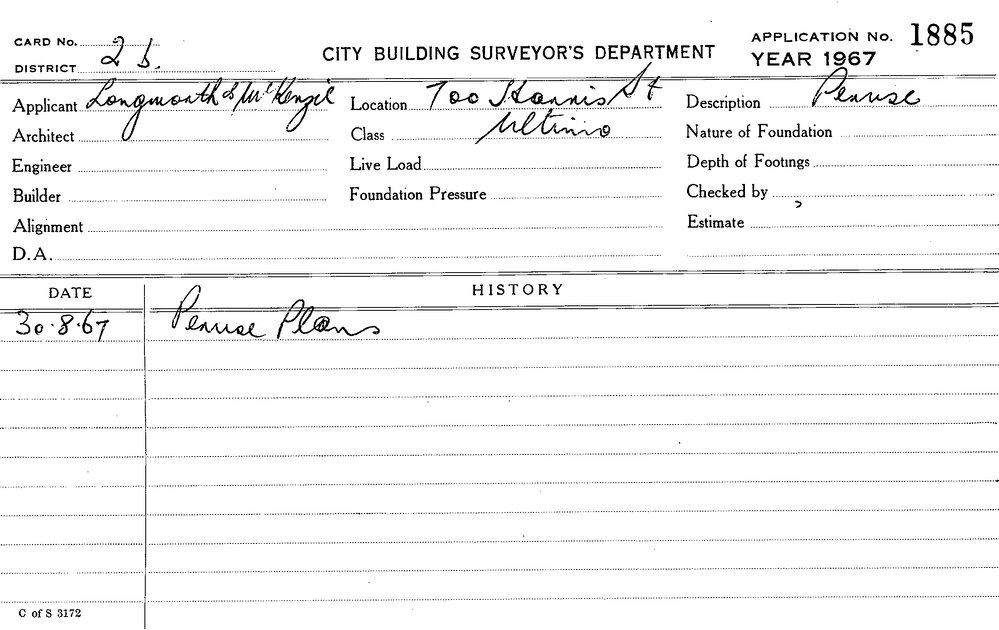 CARD No. 2 b.
DISTRICT
CITY BUILDING SURVEYOR'S DEPARTMENT
APPLICATION No. 1885
YEAR 1967
Applicant Longworth & McKenzie
Location 700 Harris St
Ultimo
Description Peruse
Architect
Class
Nature of Foundation
Engineer
Live Load
Depth of Footings
Builder
Foundation Pressure
Checked by
Alignment
Estimate
D.A.
DATE
HISTORY
30.8.67 Peruse Plans
C of S 3172